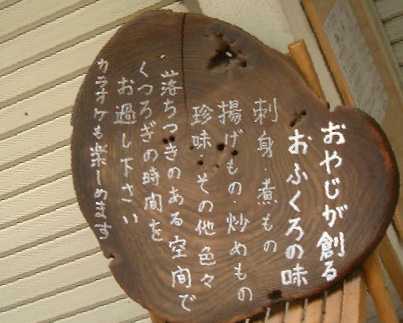 おやじが創る
おふくろの味
刺身・煮もの
揚げもの・炒めもの
珍味・その他色々
落ちつきのある空間で
くつろぎの時間を
お過し下さい
カラオケも楽しめます